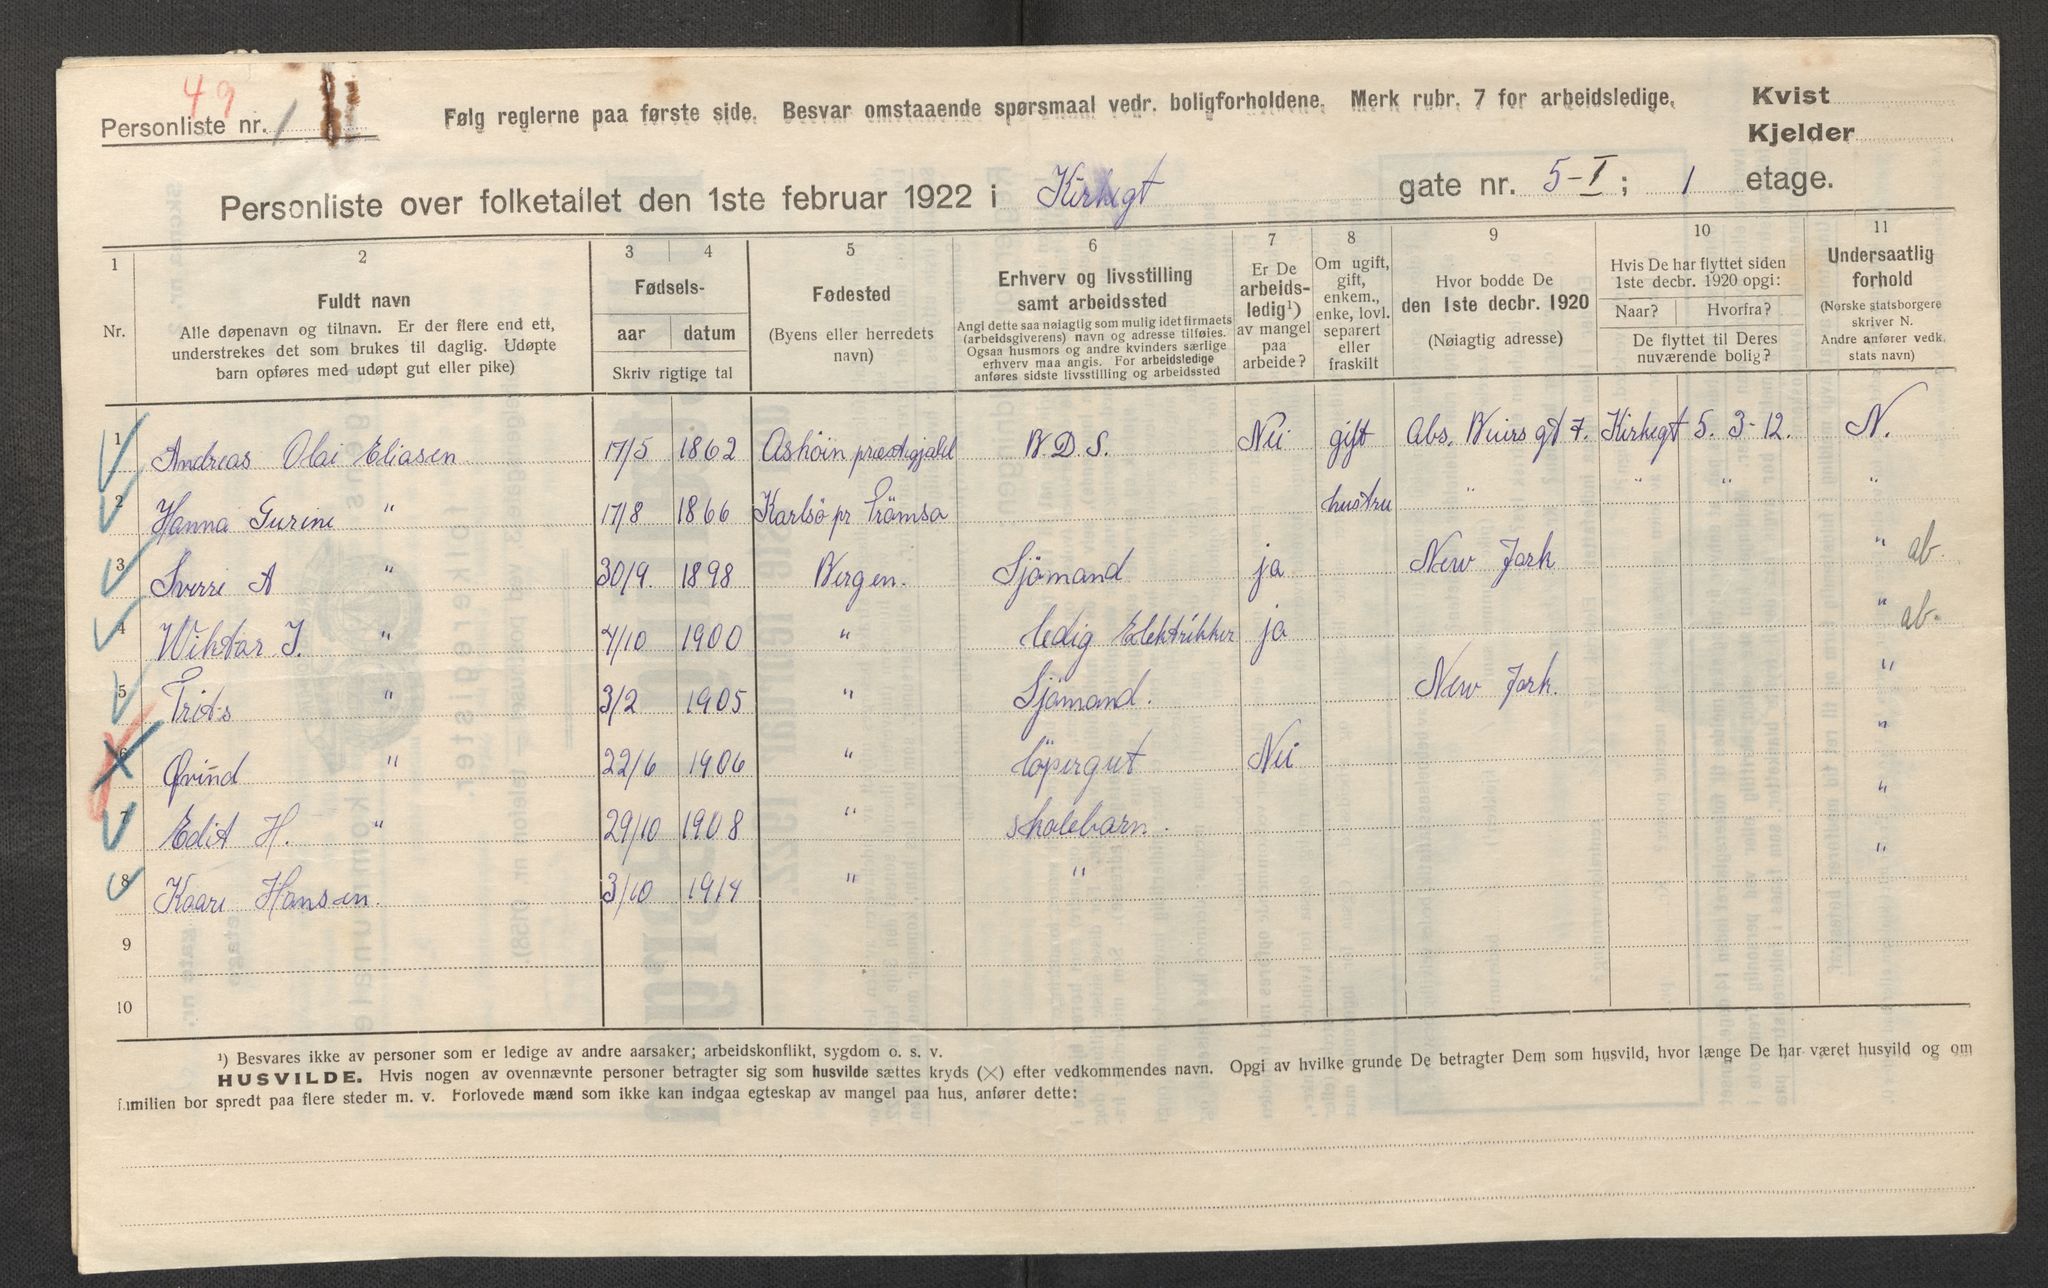 49
Personliste nr. 1
Følg reglerne paa første side. Besvar omstaaende spørsmaal vedr. boligforholdene. Merk rubr. 7 for arbeidsledige.
Kvist
Kjelder
Personliste over folketallet den 1ste februar 1922 i Kirkegt gate nr. 5-I; 1 etage.
1 2 3 4 5 6 7 8 9 10 11
Nr.
Fuldt navn
Alle døpenavn og tilnavn. Er der flere end ett,
understrekes det som brukes til daglig. Udøpte
barn opføres med udøpt gut eller pike)
Fødsels-
aar datum
Skriv rigtige tal
Fødested
(Byens eller herredets
navn)
Erhverv og livsstilling
samt arbeidssted
Angi dette saa nøiagtig som mulig idet firmaets
(arbeidsgiverens) navn og adresse tilføies.
Ogsaa husmors og andre kvinders særlige
erhverv maa angis. For arbeidsledige
anføres sidste livsstilling og arbeidssted
Er De
arbeids-
ledig¹)
av mangel
paa
arbeide?
Om ugift,
gift,
enkem.,
enke, lovl.
separert
eller
fraskilt
Hvor bodde De
den 1ste decbr. 1920
(Nøiagtig adresse)
Hvis De har flyttet siden
1ste decbr. 1920 opgi:
Naar? Hvorfra?
De flyttet til Deres
nuværende bolig?
Undersaatlig
forhold
(Norske statsborgere
skriver N.
Andre anfører vedk.
stats navn)
1 Andreas Olai Eliasen 17/5 1862 Asköin prestegjald B.D.S. Nei gift Abs. Beiersgt 7. Kirkegt 5. 3-12. N.
2 Hanna Gurine " 17/8 1866 Karlsö pr Trömsa hustru " " " "
3 Sverre A " 30/9. 1898 Bergen. Sjömand ja New Jork " ab.
4 Wiktor J. " 4/10 1900 " ledig Elektrikker ja " ab.
5 Frits " 3/2 1905 " Sjömand. New Jork. "
6 Øvind " 22/6 1906 " löpergut Nei "
7 Edit H. " 29/10 1908 " skolebarn. "
8 Kaare Hansen. 3/10 1914 " " "
9
10
¹) Besvares ikke av personer som er ledige av andre aarsaker; arbeidskonflikt, sygdom o. s. v.
HUSVILDE. Hvis nogen av ovennævnte personer betragter sig som husvilde sættes kryds (×) efter vedkommendes navn. Opgi av hvilke grunde De betragter Dem som husvild, hvor længe De har været husvild og om
familien bor spredt paa flere steder m. v. Forlovede mænd som ikke kan indgaa egteskap av mangel paa hus, anfører dette: